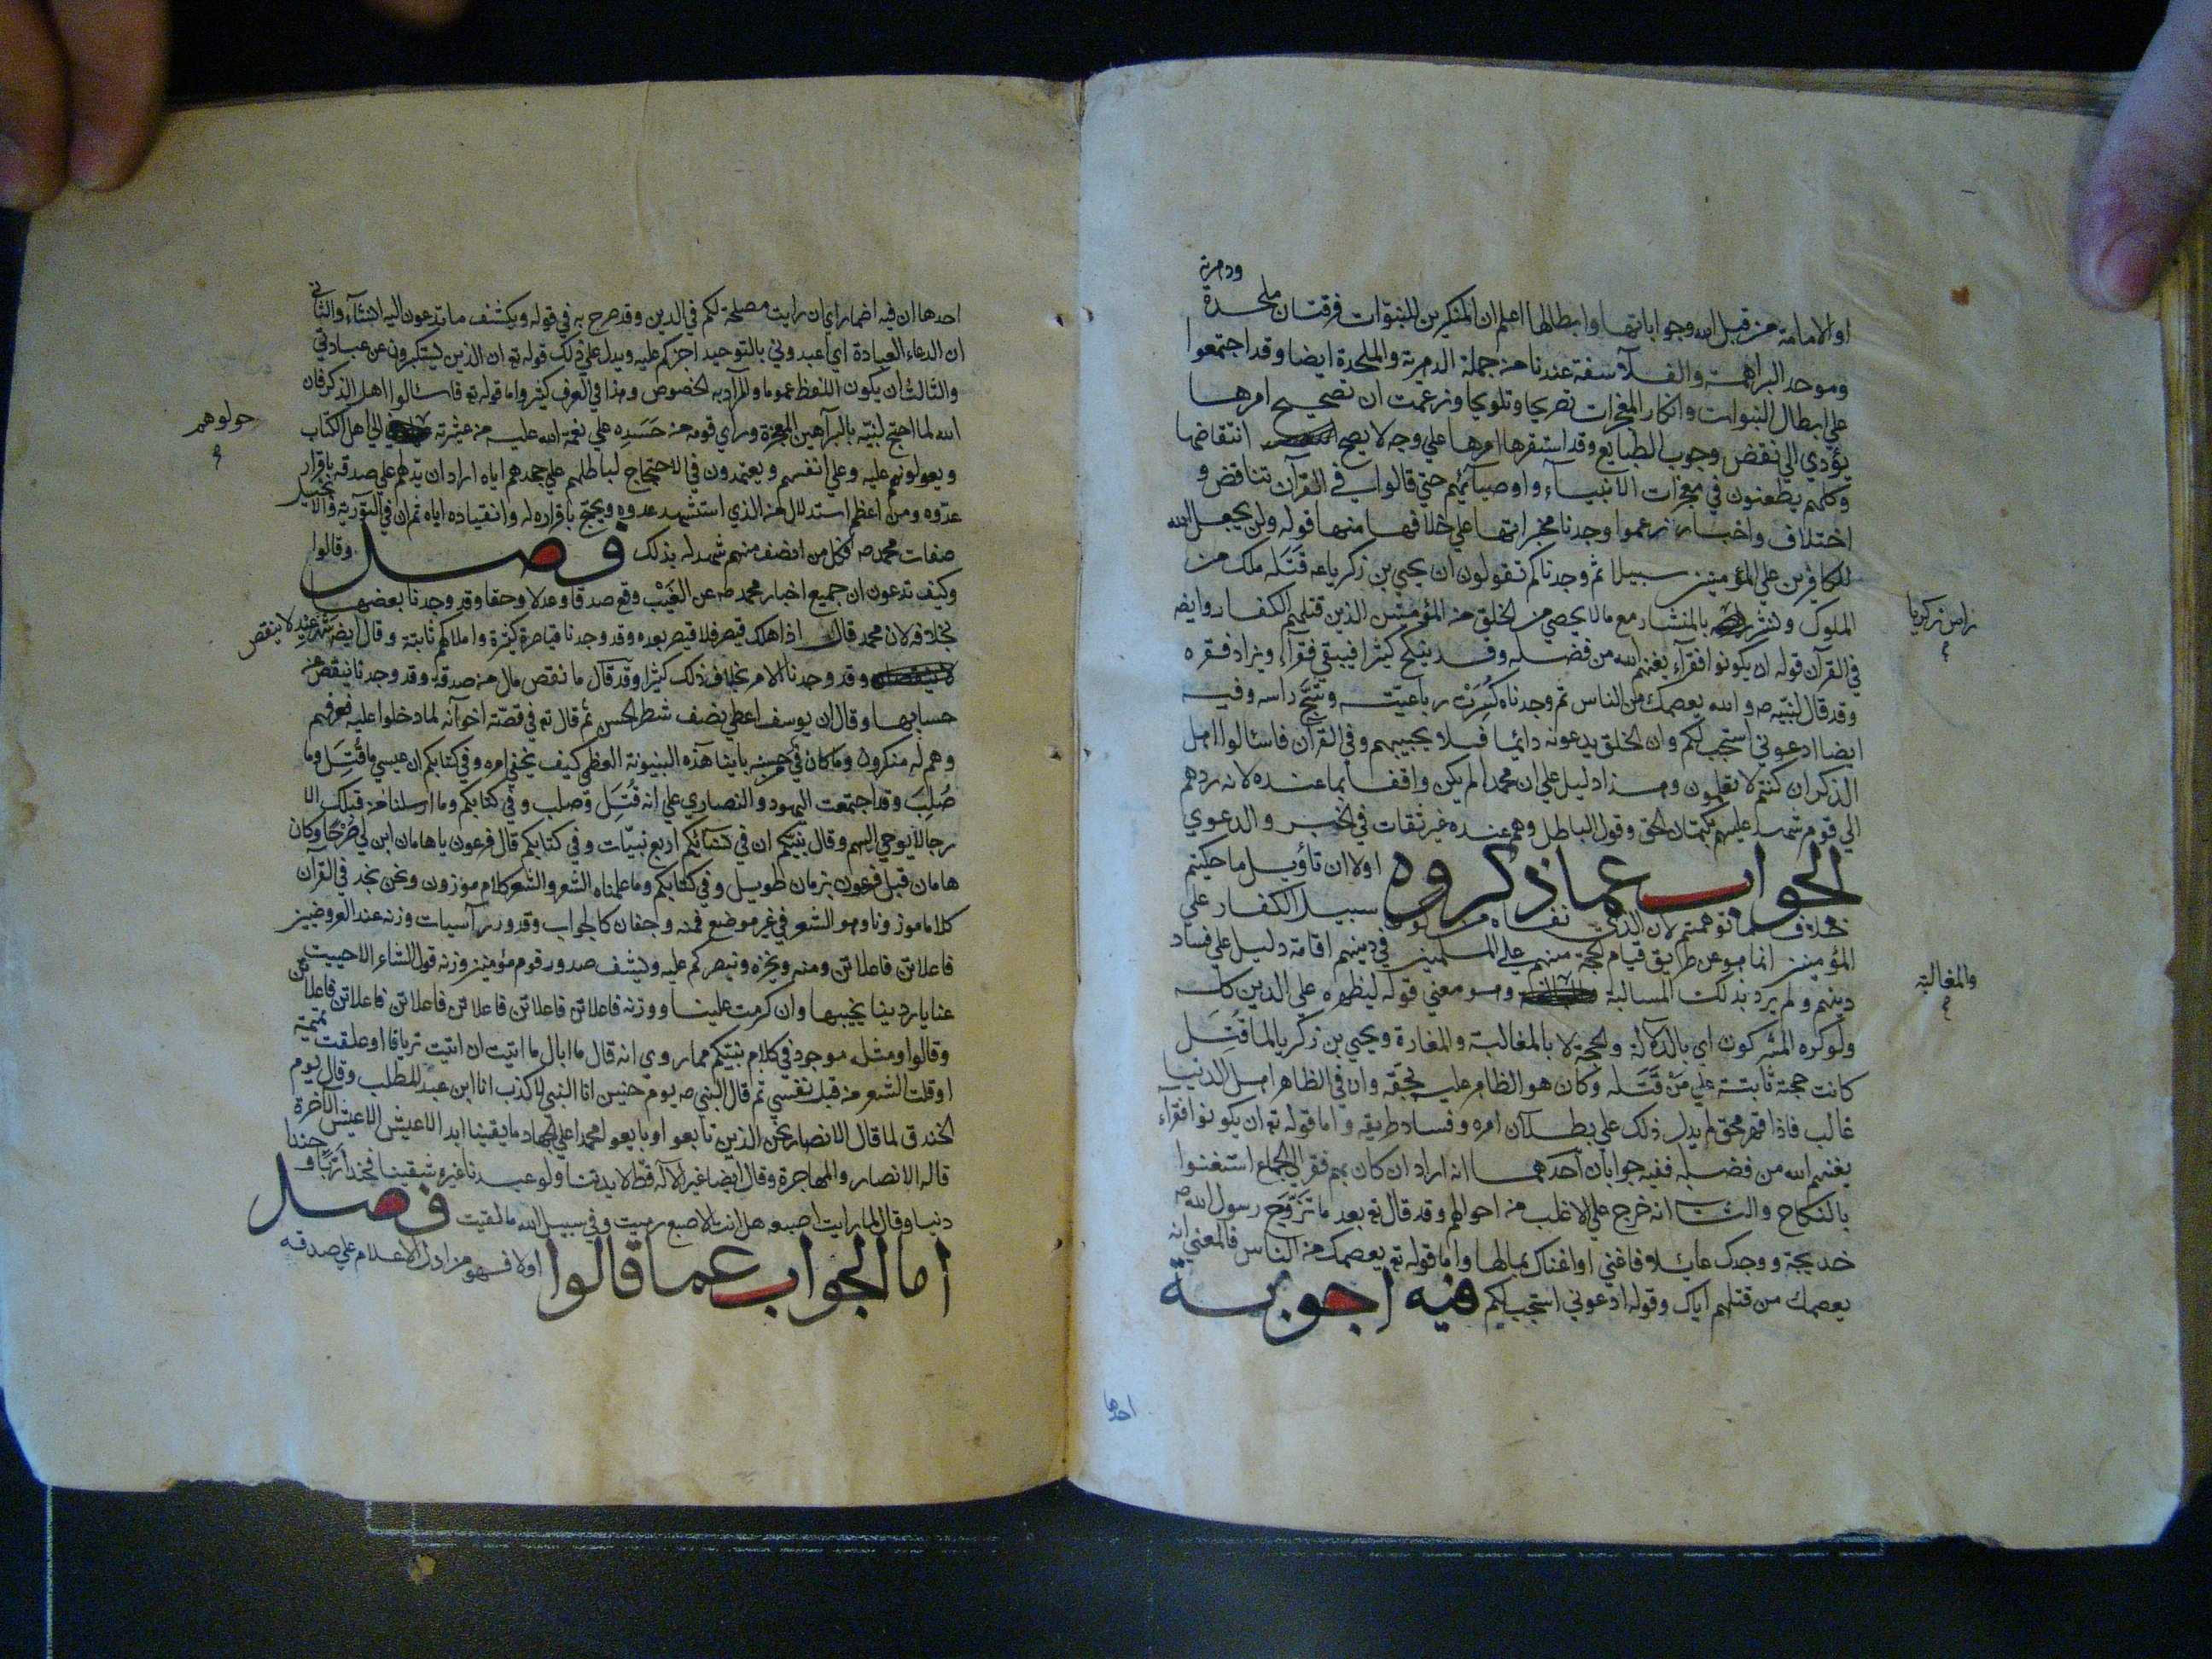 ودهرية
او الامامة من قبل الله وجواباتها وابطالها اعلم ان المنكرين للنبوات فرقتان ملحدة
وموحد البراهمة والفلاسفة عندنا من جملة الدهرية والملحدة ايضا وقد اجتمعوا
علي ابطال النبوات وانكار المعجزات تصريحا وتلويحا وزعمت ان تصحيح امرها
يؤدي الي نقض وجوب الطبايع وقد استقر امرها علي وجه لا يصح انتقاضها
وكلهم يطعنون في معجزات الانبياء واوصيائهم حتي قالوا في القرآن تناقض و
اختلاف واخبار زعموا وجدنا مخبراتها علي خلافها منها قوله ولن يجعل الله
للكافرين علي المؤمنين سبيلا ثم وجدناكم تقولون ان يحيي بن زكريا عه قتله ملك من
الملوك ونشر بالمنشار مع ما لا يحصي من الخلق من المؤمنين الذين قتلهم الكفار وايضه
راس زكريا
في القرآن قوله ان يكونوا فقرآء يغنهم الله من فضله وقد ينكح كثيرا فيبقي فقرآء ويزاد فقره
وقد قال لنبيه ص والله يعصمك من الناس ثم وجدناه كسرت رباعيته وشج راسه وفيه
ايضا ادعوني استجب لكم وان الخلق يدعونه دائما فلا يجيبهم وفي القرآن فاسئالوا اهل
الذكر ان كنتم لا تعلمون وهذا دليل علي ان محمدا لم يكن واقفا بما عنده لانه ردهم
الي قوم شهد عليهم بكتمان الحق وقول الباطل وهم عنده غير ثقات في الخبر والدعوي
الجواب عما ذكروه اولا ان تاؤيل ما حكيتم
خلاف ما توهمتم لان الذي نفاه من كون سبيل الكفار علي
المؤمنين انما هو عن طريق قيام الحجة منهم علي المسلمين في دينهم اقامة دليل علي فساد
دينهم ولم يرد بذلك المسالبة وهو معني قوله ليظهره علي الدين كله
والمغالبة
ولو كره المشركون اي بالدلالة والحجة لا بالمغالبة والمغارة ويحيي بن زكريا لما قتل
كانت حجة ثابتة علي من قتله وكان هو الظاهر عليه بحقه وان في الظاهر اهل الدنيا
غالب فاذا قهر محق لم يدل ذلك علي بطلان امره وفساد طريقه واما قوله تع ان يكونوا فقرآء
يغنهم الله من فضله ففيه جوابان احدهما انه اراد ان كان بهم فقر الي الجماع استغنوا
بالنكاح والثاني انه خرج علي الاغلب من احوالهم وقد قال تع بعد ما تزوج رسول الله ص
خديجة ووجدك عائلا فاغني اي اغناك بمالها واما قوله تع يعصمك من الناس فالمعني انه
يعصمك من قتلهم اياك وقوله ادعوني استجب لكم فيه اجوبة
احدها
احدها ان فيه اضمارا اي ان رايت مصلحة لكم في الدين وقد صرح به في قوله ويكشف ما تدعون اليه ان شآء والثاني
ان الدعاء العبادة اي اعبدوني بالتوحيد اجزكم عليه ويدل علي ذلك قوله تع ان الذين يستكبرون عن عبادتي
والثالث ان يكون اللفظ عموما والمراد به الخصوص وهذا في العرف كثير واما قوله تع فاسئالوا اهل الذكر فان
الله لما احتج لنبيه بالبراهين المعجزة وراي قومه من حسده علي نعمة الله عليه من عشيرته الي اهل الكتاب
حولوهم
ويعولونهم عليه وعلي انفسهم ويعتمدون في الاحتجاج لباطلهم علي جحدهم اياه اراد ان يدلهم علي صدقه باقرار
عدوه ومن اعظم استدلال من الذي استشهد عدوه ويحتج باقراره له وانقياده اياه ثم ان في التورية والانجيل
صفات محمد ص فكل من انصف منهم شهد له بذلك فصل وقالوا
وكيف تدعون ان جميع اخبار محمد ص عن الغيب وقع صدقا وعدلا وحقا وقد وجدنا بعضها
بخلافه لان محمد قال اذا هلك قيصر فلا قيصر بعده وقد وجدنا قياصرة كثيرة واملاكهم ثابتة وقال ايضه شهر عيد لا ينقص
وقد وجدنا الامر بخلاف ذلك كثيرا وقد قال ما نقص مال من صدقة وقد وجدنا ينقص من
حسابها وقال ان يوسف اعطي نصف شطر الحسن ثم قال تع في قصة اخوانه لما دخلوا عليه فعرفهم
وهم له منكرون وما كان في حسنه باينا هذه البينونة العظمي كيف يخفي امره وفي كتابكم ان عيسي ما قتل وما
صلب وقد اجتمعت اليهود والنصاري علي انه قتل وصلب وفي كتابكم وما ارسلنا من قبلك الا
رجالا يوحي اليهم وقال نبيكم ان في نسائكم اربع نبيات وفي كتابكم قال فرعون يا هامان ابن لي صرحا وكان
هامان قبل فرعون بزمان طويل وفي كتابكم وما علمناه الشعر والشعر كلام موزون ونحن نجد في القرآن
كلاما موزونا وهو الشعر في غير موضع فمنه وجفان كالجواب وقدور راسيات وزنه عند العروضيين
فاعلاتن فاعلاتن ومنه ويخزهم وينصركم عليهم ويشف صدور قوم مؤمنين وزنه قول الشاعر الا حييت
عنا يا ردينا نحييها وان كرمت علينا ووزنه فاعلاتن فاعلاتن فاعلاتن فاعلاتن فاعلاتن فاعلاتن
وقالوا ومثله موجود في كلام نبيكم مما روي انه قال ما ابالي ما اتيت ان اتيت ترياقا او علقت تميمة
او قلت الشعر من قبل نفسي ثم قال النبي ص يوم حنين انا النبي لا كذب انا ابن عبد المطلب وقال يوم
الخندق لما قال الانصار نحن الذين تابعوا او بايعوا محمدا علي الجهاد ما بقينا ابدا لا عيش الا عيش الآخرة
قاله الانصار والمهاجرة وقال ايضا غير الاله قط لا يدينا ولو عبدنا غيره شقينا فحبذا ربا وحبذا
دينا وقال لما رايت اصبعه هل انت الا اصبع رميت وفي سبيل الله ما لقيت فصل
اما الجواب عما قالوا اولا فهو من ادل الاعلام علي صدقه